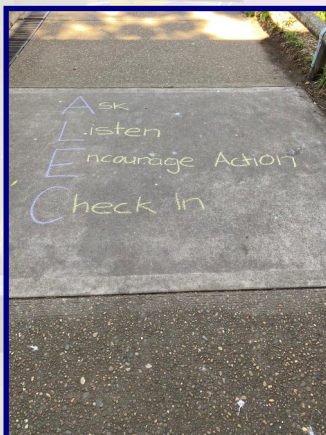 Ask
Listen
Encourage Action
Check In